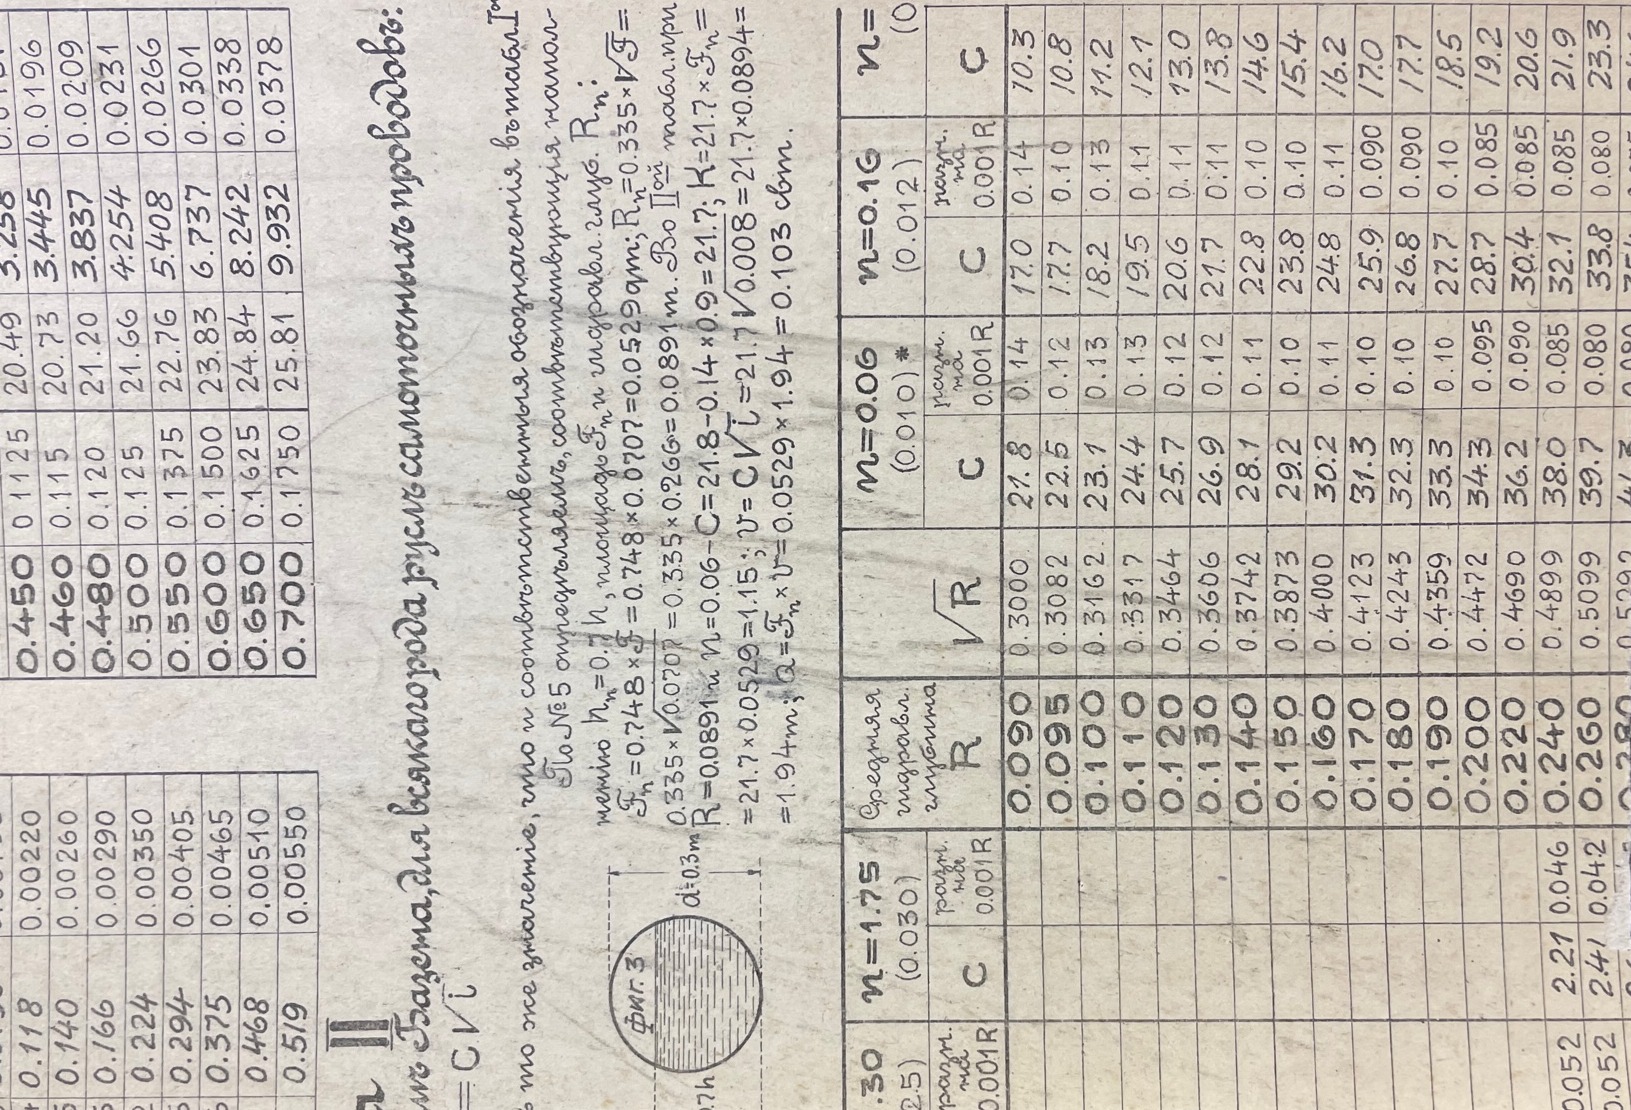 0.118 0.00220 0.450 0.1125 20.49
0.140 0.00260 0.460 0.115 20.73 3.445 0.0196
0.166 0.00290 0.480 0.120 21.20 3.837 0.0209
0.224 0.00350 0.500 0.125 21.66 4.254 0.0231
0.294 0.00405 0.550 0.1375 22.76 5.408 0.0266
0.375 0.00465 0.600 0.1500 23.83 6.737 0.0301
0.468 0.00510 0.650 0.1625 24.84 8.242 0.0338
0.519 0.00550 0.700 0.1750 25.81 9.932 0.0378
II
Базена, для всякаго рода руслъ самоточныхъ проводовъ:
= C√i
то же значеніе, что и соотвѣтственныя обозначенія въ табл. I
По № 5 опредѣляемъ, соотвѣтствующія напол-
ненію hₙ=0.7 h, площадь Fₙ и гидравл. глуб. Rₙ:
Fₙ=0.748×F=0.748×0.0707=0.0529 qm; Rₙ=0.335×√F=
0.335×√0.0707=0.335×0.266=0.0891 m. Во II ой табл. при
R=0.0891 и n=0.06-C=21.8-0.14×0.9=21.7; K=21.7×Fₙ=
=21.7×0.0529=1.15; v=C√i=21.7√0.008=21.7×0.0894=
=1.94 m; Q=Fₙ×v=0.0529×1.94=0.103 cbm.
фиг. 3
d=0.3 m
.7 h
.30 n=1.75 Средняя гидравл. глубина R √R n=0.06 n=0.16 n=
2.5) (0.030) (0.010)* (0.012) (0
разн. на 0.001R C разн. на 0.001R C разн. на 0.001R C разн. на 0.001R C
0.090 0.3000 21.8 0.14 17.0 0.14 10.3
0.095 0.3082 22.5 0.12 17.7 0.10 10.8
0.100 0.3162 23.1 0.13 18.2 0.13 11.2
0.110 0.3317 24.4 0.13 19.5 0.11 12.1
0.120 0.3464 25.7 0.12 20.6 0.11 13.0
0.130 0.3606 26.9 0.12 21.7 0.11 13.8
0.140 0.3742 28.1 0.11 22.8 0.10 14.6
0.150 0.3873 29.2 0.10 23.8 0.10 15.4
0.160 0.4000 30.2 0.11 24.8 0.11 16.2
0.170 0.4123 31.3 0.10 25.9 0.090 17.0
0.180 0.4243 32.3 0.10 26.8 0.090 17.7
0.190 0.4359 33.3 0.10 27.7 0.10 18.5
0.200 0.4472 34.3 0.095 28.7 0.085 19.2
0.220 0.4690 36.2 0.090 30.4 0.085 20.6
0.052 2.21 0.046 0.240 0.4899 38.0 0.085 32.1 0.085 21.9
0.052 2.41 0.042 0.260 0.5099 39.7 0.080 33.8 0.080 23.3